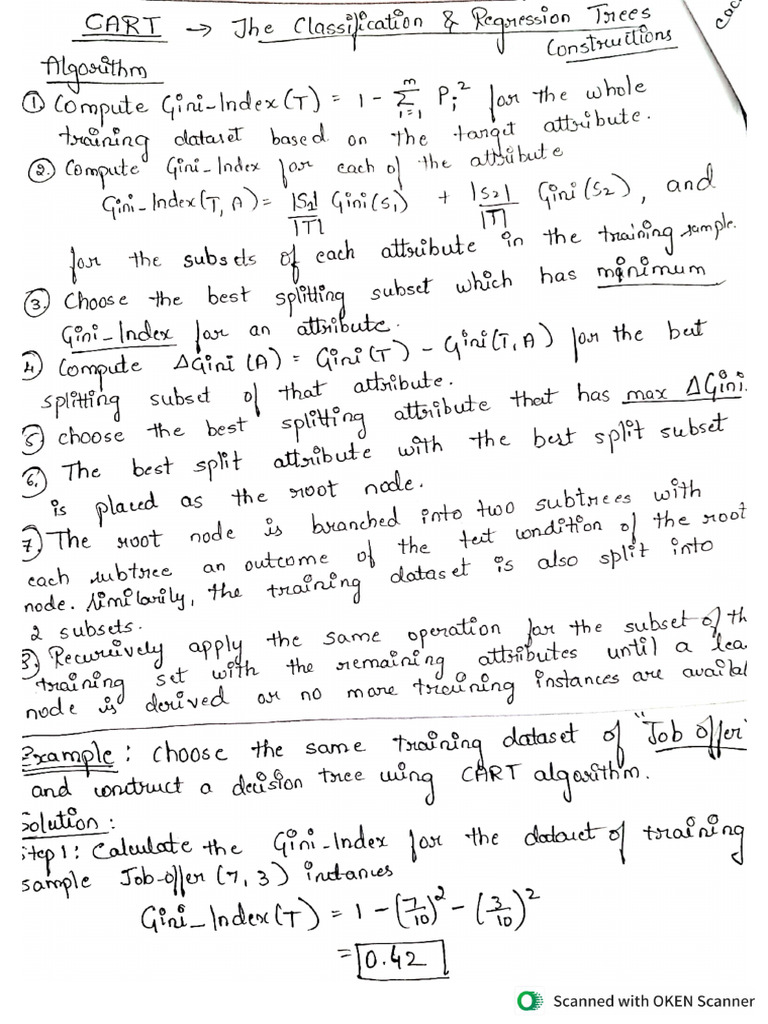 CART → The Classification & Regression Trees
Constructions
Algorithm
① Compute Gini-Index(T) = 1 - Σ_{i=1}^{m} P_i² for the whole
training dataset based on the target attribute.
② Compute Gini-Index for each of the attribute
Gini-Index(T, A) = |S₁|/|T| Gini(S₁) + |S₂|/|T| Gini(S₂), and
for the subsets of each attribute in the training sample.
③ Choose the best splitting subset which has minimum
Gini-Index for an attribute.
④ Compute ΔGini(A) = Gini(T) - Gini(T, A) for the best
splitting subset of that attribute.
⑤ choose the best splitting attribute that has max ΔGini.
⑥ The best split attribute with the best split subset
is placed as the root node.
⑦ The root node is branched into two subtrees with
each subtree an outcome of the test condition of the root
node. Similarily, the training dataset is also split into
2 subsets.
⑧ Recursively apply the same operation for the subset of th
training set with the remaining attributes until a lea
node is derived or no more training instances are availab
Example: Choose the same training dataset of "Job offer"
and construct a decision tree using CART algorithm.
Solution:
Step 1: Calculate the Gini-Index for the dataset of training
sample Job-offer (7, 3) instances
Gini_Index(T) = 1 - (7/10)² - (3/10)²
= 0.42
Scanned with OKEN Scanner